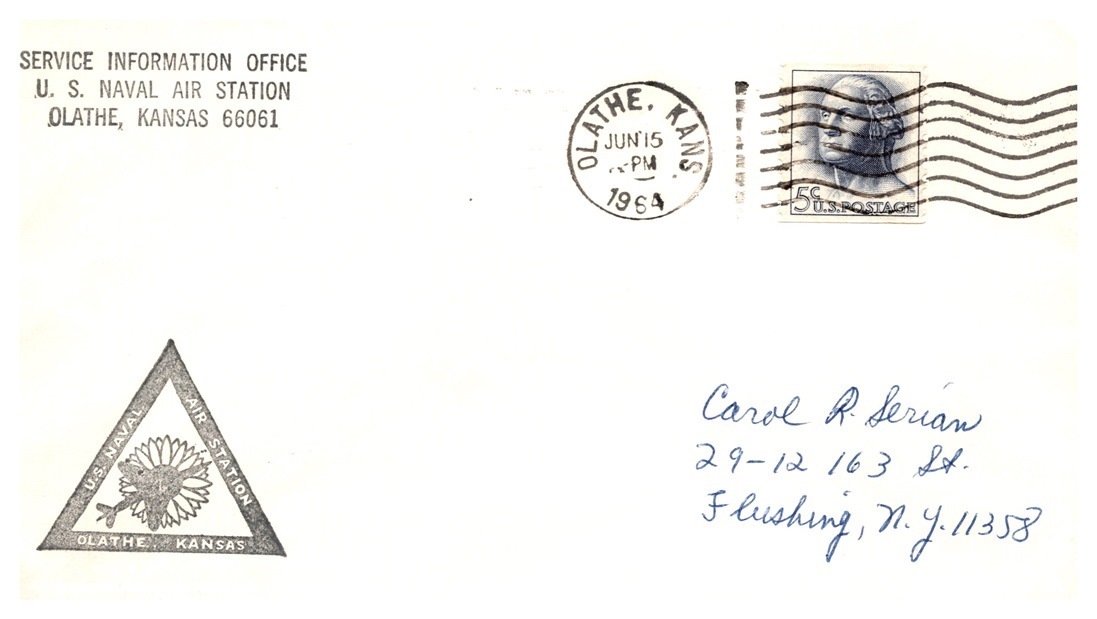 SERVICE INFORMATION OFFICE
U. S. NAVAL AIR STATION
OLATHE, KANSAS 66061
OLATHE, KANS.
JUN 15
PM
1964
5c U.S. POSTAGE
Carol R. Serian
29-12 163 St.
Flushing, N.Y. 11358
U.S. NAVAL AIR STATION
OLATHE, KANSAS